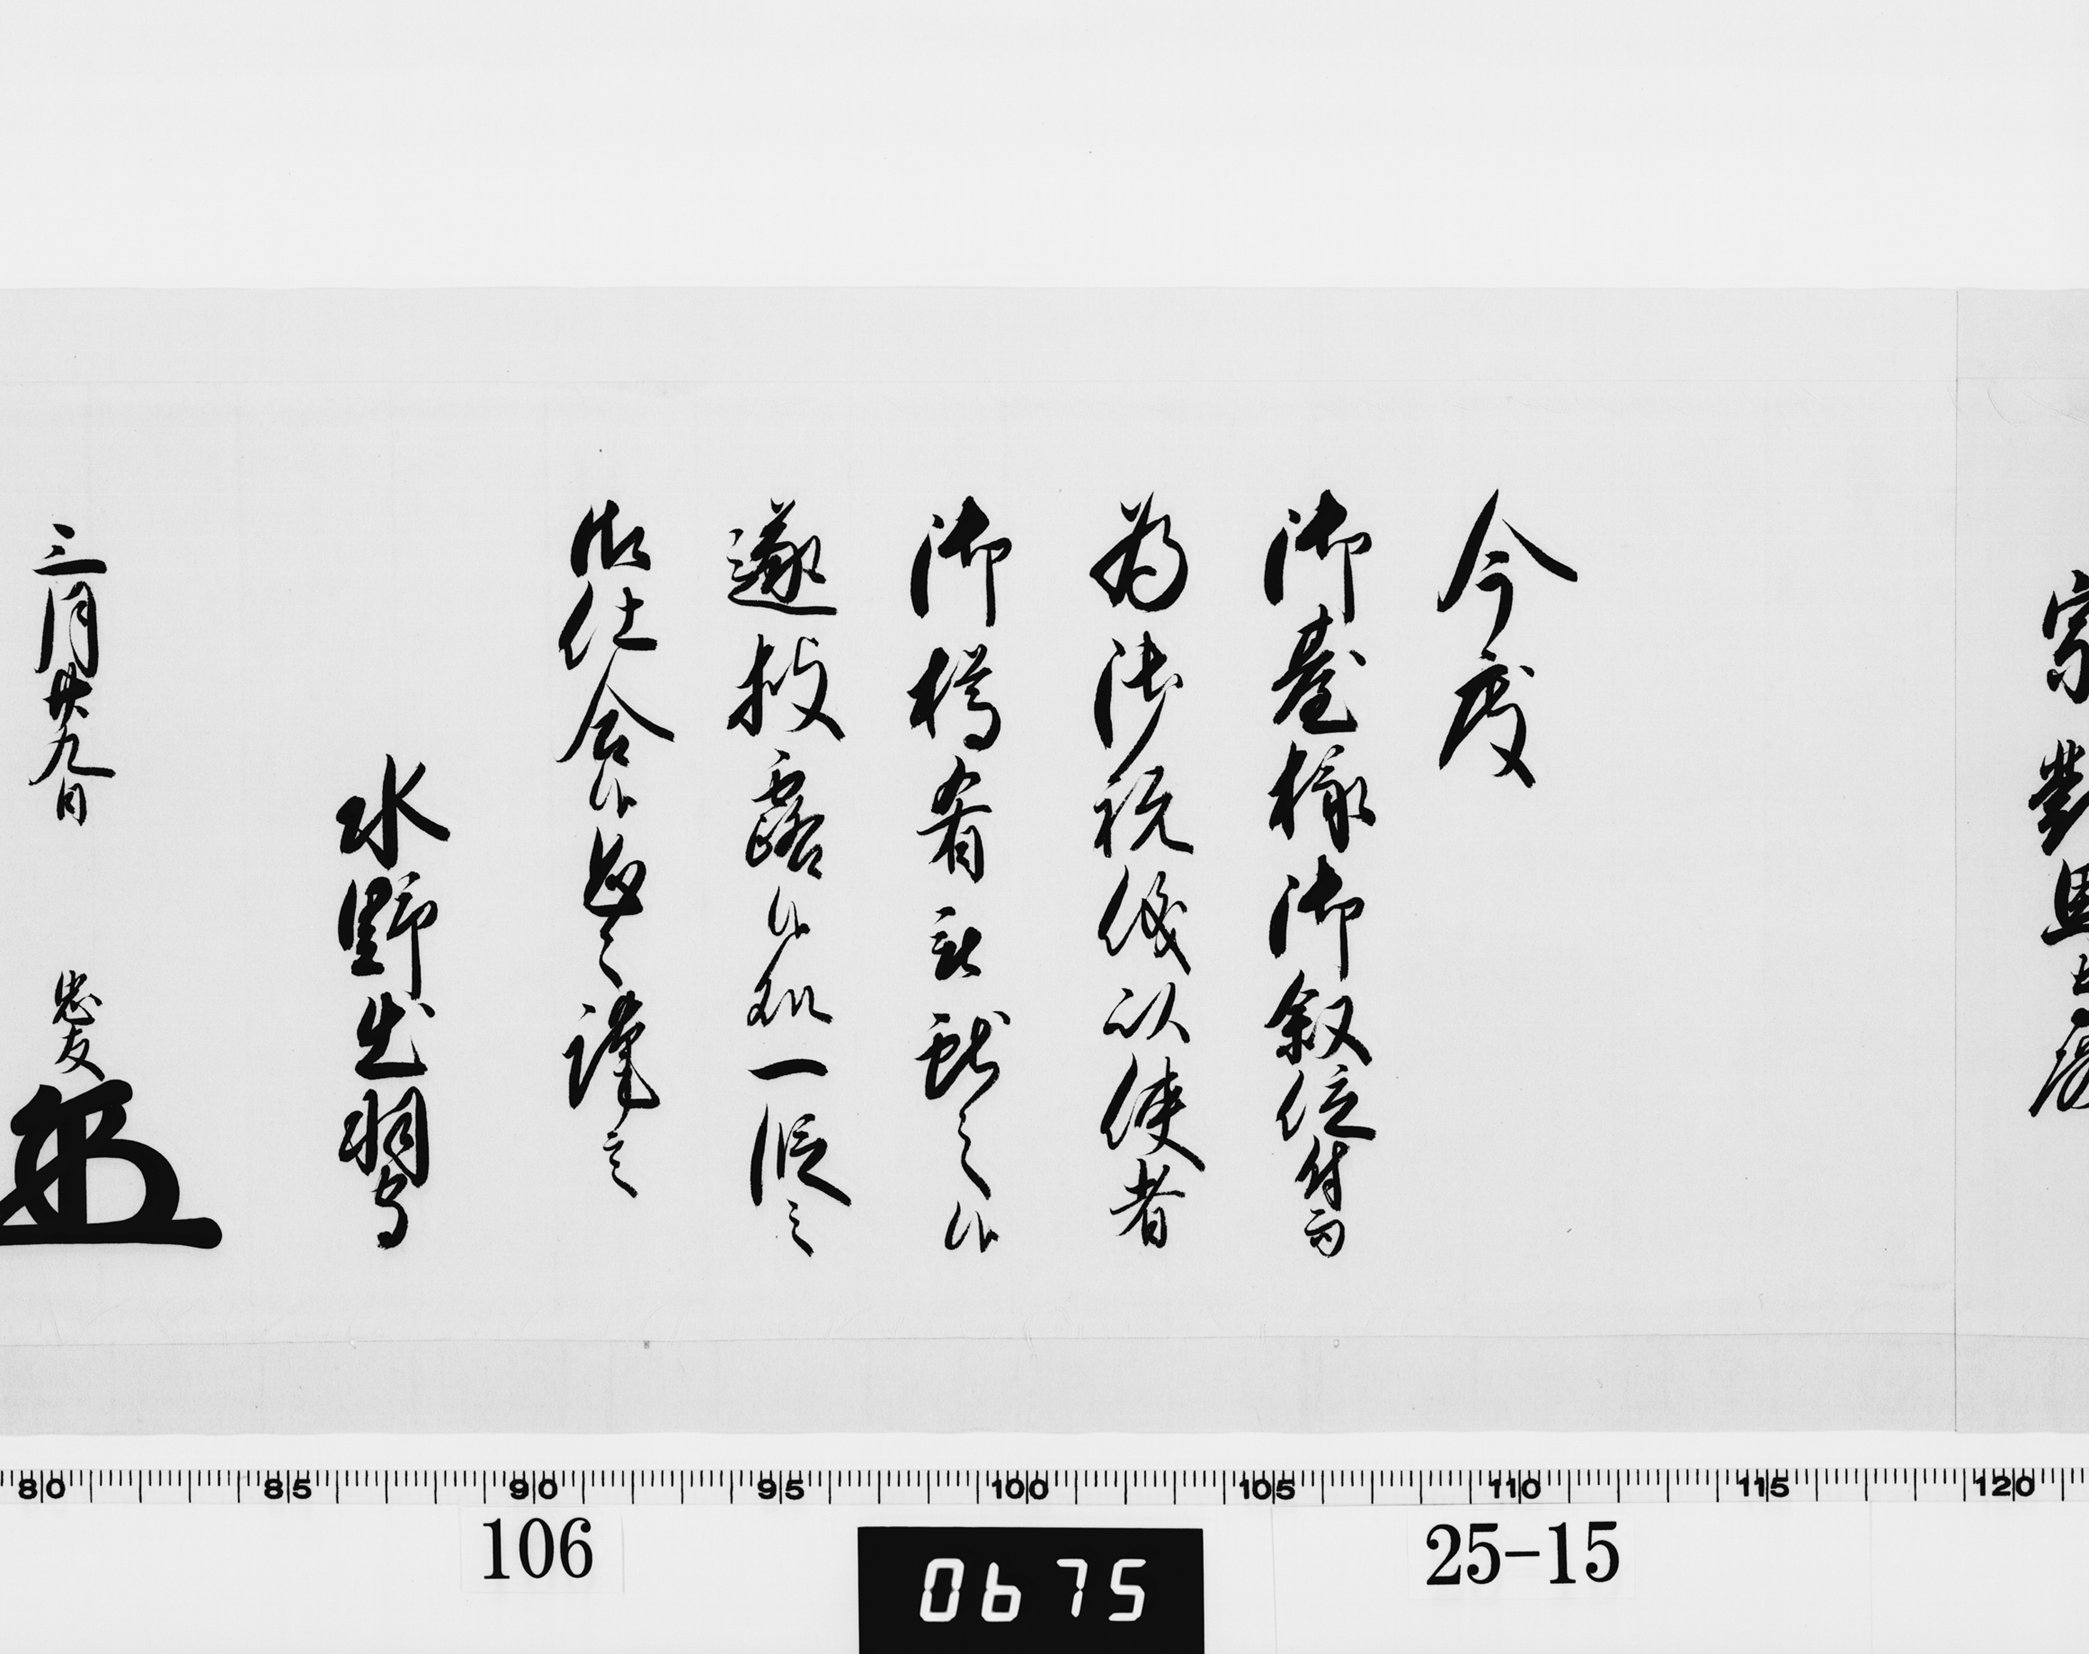 宗對馬守殿
今度
御臺様御叙位付而
為御祝儀以使者
御樽肴被獻之候
遂披露候処一段之
御仕合候恐々謹言
水野出羽守
三月廿九日
忠友
80 85 90 95 100 105 110 115 120
106
0675
25-15